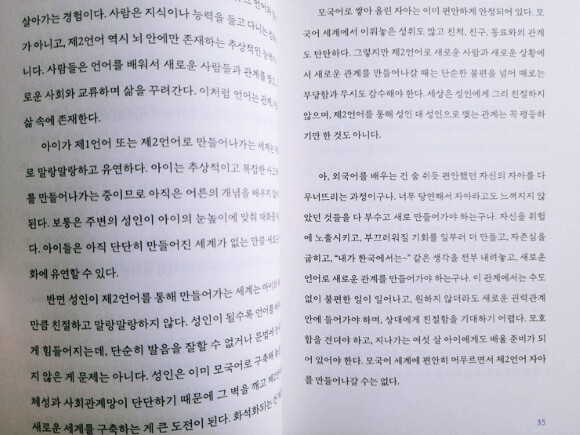 살아가는 경험이다. 사람은 지식이나 능력을 들고 다니는
가 아니고, 제2언어 역시 뇌 안에만 존재하는 추상적인
니다. 사람들은 언어를 배워서 새로운 사람들과 관계를 맺고
로운 사회와 교류하며 삶을 꾸려간다. 이처럼 언어는 관계
삶 속에 존재한다.
아이가 제1언어 또는 제2언어로 만들어나가는 세계는
로 말랑말랑하고 유연하다. 아이는 추상적이고 복잡한
를 만들어나가는 중이므로 아직은 어른의 개념을 배우지
된다. 보통은 주변의 성인이 아이의 눈높이에 맞춰
다. 아이들은 아직 단단히 만들어진 세계가 없는 만큼
화에 유연할 수 있다.
반면 성인이 제2언어를 통해 만들어가는 세계는
만큼 친절하고 말랑말랑하지 않다. 성인이 될수록 언어를
게 힘들어지는데, 단순히 발음을 잘할 수 없거나
지 않은 게 문제는 아니다. 성인은 이미 모국어로 구축해
체성과 사회관계망이 단단하기 때문에 그 벽을 깨고
새로운 세계를 구축하는 게 큰 도전이 된다. 화석화되는
모국어로 쌓아 올린 자아는 이미 편안하게 안정되어 있다. 모
국어 세계에서 이뤄놓은 성취도 많고 친척, 친구, 동료와의 관계
도 탄탄하다. 그렇지만 제2언어로 새로운 사람과 새로운 상황에
서 새로운 관계를 만들어나갈 때는 단순한 불편을 넘어 때로는
부당함과 무시도 감수해야 한다. 세상은 성인에게 그리 친절하지
않으며, 제2언어를 통해 성인 대 성인으로 맺는 관계는 꼭 평등하
기만 한 것도 아니다.
아, 외국어를 배우는 건 숨 쉬듯 편안했던 자신의 자아를 다
무너뜨리는 과정이구나. 너무 당연해서 자아라고도 느껴지지 않
았던 것들을 다 부수고 새로 만들어가야 하는구나. 자신을 위험
에 노출시키고, 부끄러워질 기회를 일부러 더 만들고, 자존심을
굽히고, “내가 한국에서는-” 같은 생각을 전부 내려놓고, 새로운
언어로 새로운 관계를 만들어가야 하는구나. 이 관계에서는 수도
없이 불편한 일이 일어나고, 원하지 않더라도 새로운 권력관계
안에 들어가야 하며, 상대에게 친절함을 기대하기 어렵다. 모호
함을 견뎌야 하고, 지나가는 여섯 살 아이에게도 배울 준비가 되
어 있어야 한다. 모국어 세계에 편안히 머무르면서 제2언어 자아
를 만들어나갈 수는 없다.
35